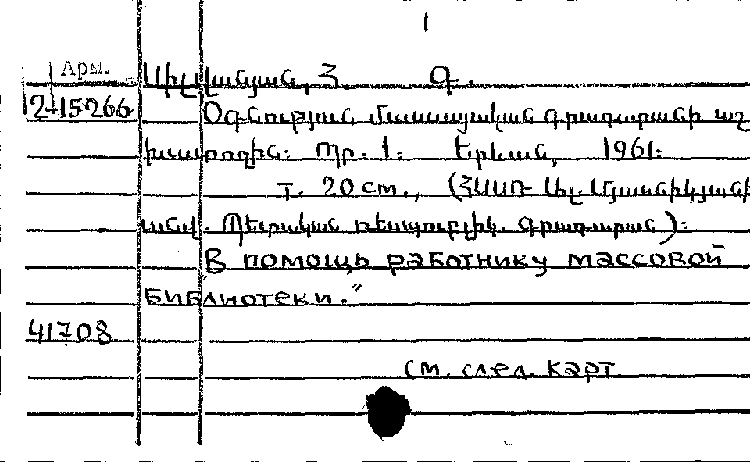 1
Арм.
Սիլվանյան, Հ. Գ.
2-15266
Օգնություն մասսայական գրադարանի աշ
խատողին: Пր. 1: Երևան, 1961:
т. 20 cm., (ՀՍՍՌ Ալ. Մյասնիկյանի
անվ. Պետական ռեսպուբլիկ. գրադարան):
В помощь работнику массовой
библиотеки."
41708
См. след. карт